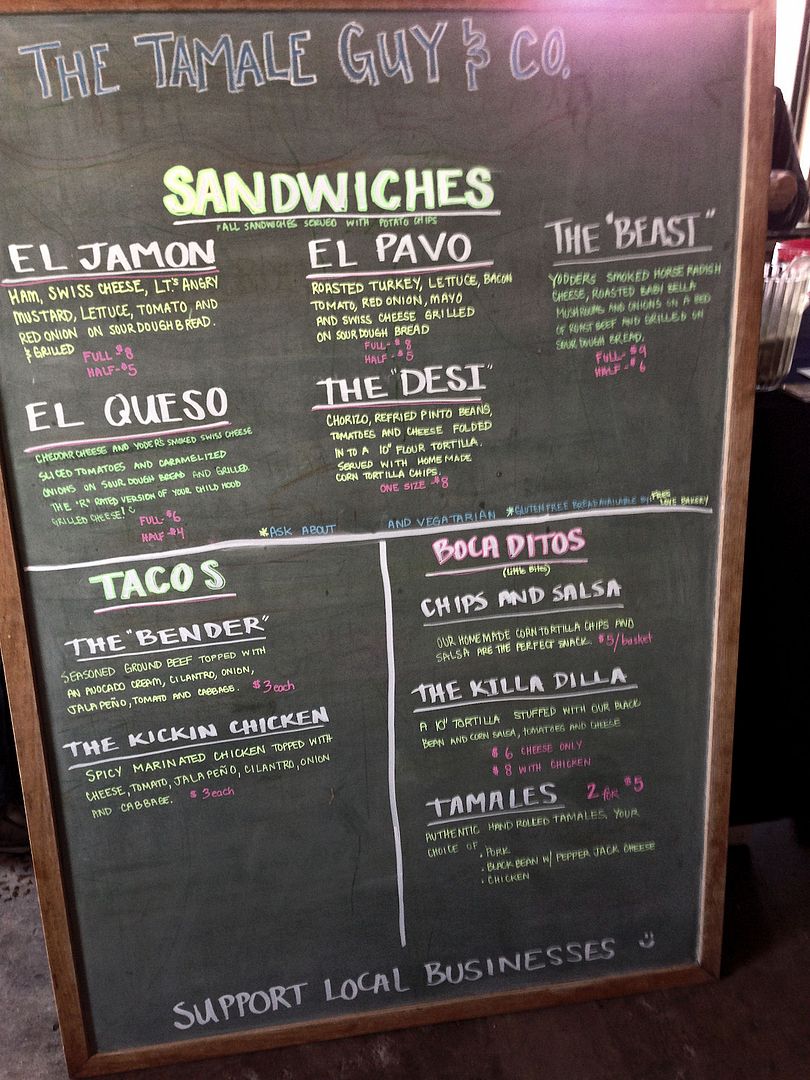 THE TAMALE GUY & CO.
SANDWICHES
*ALL SANDWICHES SERVED WITH POTATO CHIPS
EL JAMON
HAM, SWISS CHEESE, LT.'S ANGRY
MUSTARD, LETTUCE, TOMATO, AND
RED ONION ON SOURDOUGH BREAD.
& GRILLED
FULL $8
HALF-$5
EL PAVO
ROASTED TURKEY, LETTUCE, BACON
TOMATO, RED ONION, MAYO
AND SWISS CHEESE GRILLED
ON SOUR DOUGH BREAD
FULL-$8
HALF-$5
THE "BEAST"
YODDERS SMOKED HORSE RADISH
CHEESE, ROASTED BABY BELLA
MUSHROOMS AND ONIONS ON A BED
OF ROAST BEEF AND GRILLED ON
SOUR DOUGH BREAD.
FULL-$9
HALF-$6
EL QUESO
CHEDDAR CHEESE AND YODER'S SMOKED SWISS CHEESE
SLICED TOMATOES AND CARAMELIZED
ONIONS ON SOUR DOUGH BREAD AND GRILLED.
THE "R" RATED VERSION OF YOUR CHILD HOOD
GRILLED CHEESE!
FULL-$6
HALF-$4
THE "DESI"
CHORIZO, REFRIED PINTO BEANS,
TOMATOES AND CHEESE FOLDED
IN TO A 10" FLOUR TORTILLA.
SERVED WITH HOME MADE
CORN TORTILLA CHIPS.
ONE SIZE-$8
*ASK ABOUT AND VEGATARIAN *GLUTEN FREE BREAD AVAILABLE BY: FREE
LOVE BAKERY
TACOS
THE "BENDER"
SEASONED GROUND BEEF TOPPED WITH
AN AVOCADO CREAM, CILANTRO, ONION,
JALAPEÑO, TOMATO AND CABBAGE. $3 each
THE KICKIN CHICKEN
SPICY MARINATED CHICKEN TOPPED WITH
CHEESE, TOMATO, JALAPEÑO, CILANTRO, ONION
AND CABBAGE. $3 each
BOCADITOS
(Little Bites)
CHIPS AND SALSA
OUR HOMEMADE CORN TORTILLA CHIPS AND
SALSA ARE THE PERFECT SNACK. $5/basket
THE KILLA DILLA
A 10" TORTILLA STUFFED WITH OUR BLACK
BEAN AND CORN SALSA, TOMATOES AND CHEESE
$6 CHEESE ONLY
$8 WITH CHICKEN
TAMALES 2 for $5
AUTHENTIC HAND ROLLED TAMALES, YOUR
CHOICE OF
• PORK
• BLACK BEAN W/ PEPPER JACK CHEESE
• CHICKEN
SUPPORT LOCAL BUSINESSES